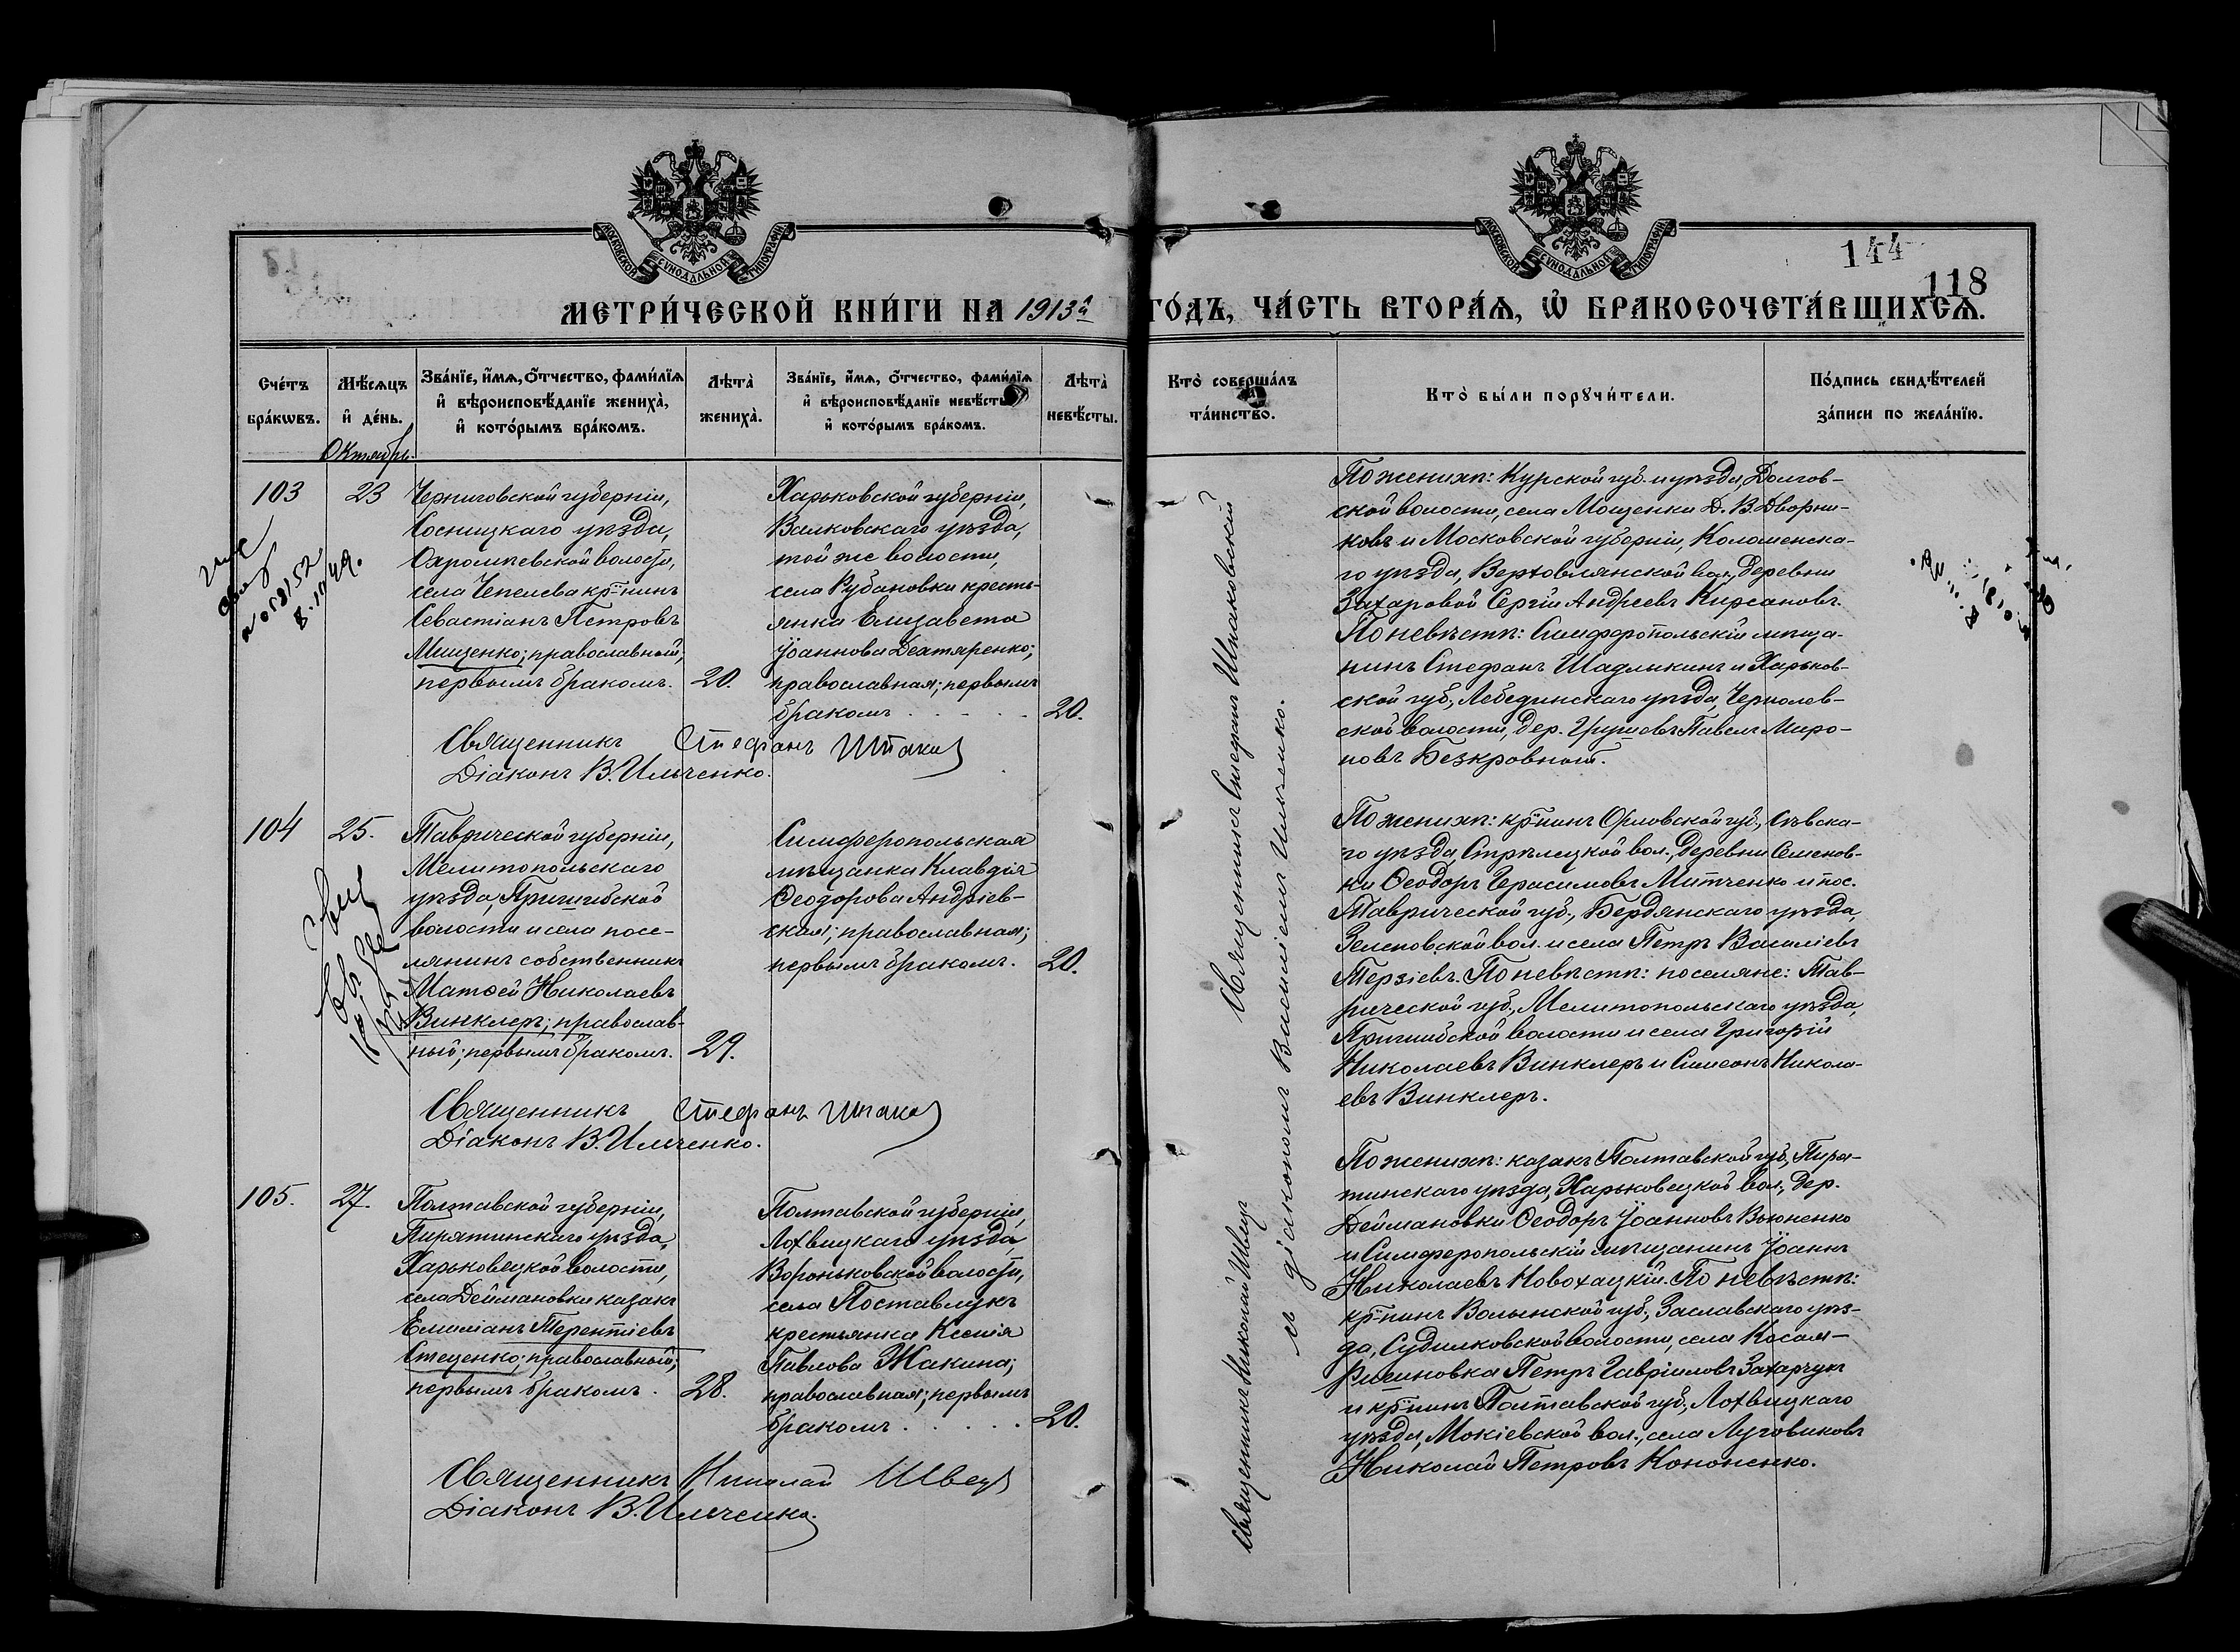 МОСКОВСКОЙ СѴНОДАЛЬНОЙ ТИПОГРАФІИ
МОСКОВСКОЙ СѴНОДАЛЬНОЙ ТИПОГРАФІИ
144
118
МЕТРИ́ЧЕСКОЙ КНИ́ГИ НА 1913й ГО́ДЪ, ЧА́СТЬ ВТОРА́Ѧ, Ѽ БРАКОСОЧЕТА́ВШИХСѦ.
Сче́тъ бра́кѡвъ.
Мѣ́сѧцъ и҆ де́нь.
Зва́нїе, и҆́мѧ, ѻ҆́тчество, фами́лїѧ и҆ вѣроисповѣ́данїе жениха̀, и҆ кото́рымъ бра́комъ.
Лѣ́та̀ жениха̀.
Зва́нїе, и҆́мѧ, ѻ҆́тчество, фами́лїѧ и҆ вѣроисповѣ́данїе невѣ́сты и҆ кото́рымъ бра́комъ.
Лѣ́та̀ невѣ́сты.
Кто̀ соверша́лъ та́инство.
Кто̀ бы́ли порꙋчи́тели.
По́дпись свидѣ́телей за́писи по жела́нїю.
Октябрь.
103
23
Черниговской губерніи,
Сосницкаго уѣзда,
волости,
села Чепелева кр-нинъ
Севастіанъ Петровъ
Мищенко; православный;
первымъ бракомъ.
20.
Харьковской губерніи,
Валковскаго уѣзда,
той же волости,
села Рубановки кресть-
янка Елизавета
Іоаннова Дехтяренко;
православная; первымъ
бракомъ
20.
Священникъ Стефанъ Шпаков
Діаконъ В. Ильченко.
По женихѣ: Курской губ. и уѣзда, Долгов-
ской волости, села Мощенки Д. В. Дворни-
ковъ и Московской губерніи, Коломенска-
го уѣзда, Верховлянской вол., деревни
Захаровой Сергій Андреевъ Кирсановъ.
По невѣстѣ: Симферопольскій мѣща-
нинъ Стефанъ Шадлыкинъ и Харьков-
ской губ., Лебединскаго уѣзда,
ской волости, дер. Павелъ Миро-
новъ Безкровный.
104
25.
Таврической губерніи,
Мелитопольскаго
уѣзда, Пришибской
волости и села посе-
лянинъ собственникъ
Матѳей Николаевъ
Винклеръ; православ-
ный; первымъ бракомъ.
29.
Симферопольская
мѣщанка Клавдія
Ѳеодорова Андріев-
ская; православная;
первымъ бракомъ.
20.
Священникъ Стефанъ Шпаков
Діаконъ В. Ильченко.
По женихѣ: кр-нинъ Орловской губ., Сѣвска-
го уѣзда, Стрѣлецкой вол., деревни Семенов-
ки Ѳеодоръ Герасимовъ Митченко и пос.
Таврической губ., Бердянскаго уѣзда,
Зеленовской вол. и села Петръ Василіевъ
Терзіевъ. По невѣстѣ: поселяне: Тав-
рической губ., Мелитопольскаго уѣзда,
Пришибской волости и села Григорій
Николаевъ Винклеръ и Симеонъ Никола-
евъ Винклеръ.
105.
27.
Полтавской губерніи,
Пирятинскаго уѣзда,
Харьковецкой волости,
села Деймановки казакъ
Емиліанъ Терентіевъ
Стеценко; православный;
первымъ бракомъ.
28.
Полтавской губерніи,
Лохвицкаго уѣзда
Вороньковской волости,
села Поставлукъ
крестьянка Ксенія
Павлова Жакина;
православная; первымъ
бракомъ
20.
Священникъ Николай Швецъ
Діаконъ В. Ильченко.
По женихѣ: казакъ Полтавской губ., Пиря-
тинскаго уѣзда, Харьковецкой вол., дер.
Деймановки Ѳеодоръ Іоанновъ Вьюненко
и Симферопольскій мѣщанинъ Іоаннъ
Николаевъ Новохацкій. По невѣстѣ:
кр-нинъ Волынской губ., Заславскаго уѣз-
да, Судилковской волости, села
Петръ Гавріиловъ Захарчукъ
и кр-нинъ Полтавской губ., Лохвицкаго
уѣзда, Мокіевской вол., села Луговиковъ
Николай Петровъ Кононенко.
Священникъ Стефанъ Шпаковскій
Священникъ Николай Швецъ
съ діакономъ Василіемъ Ильченко.